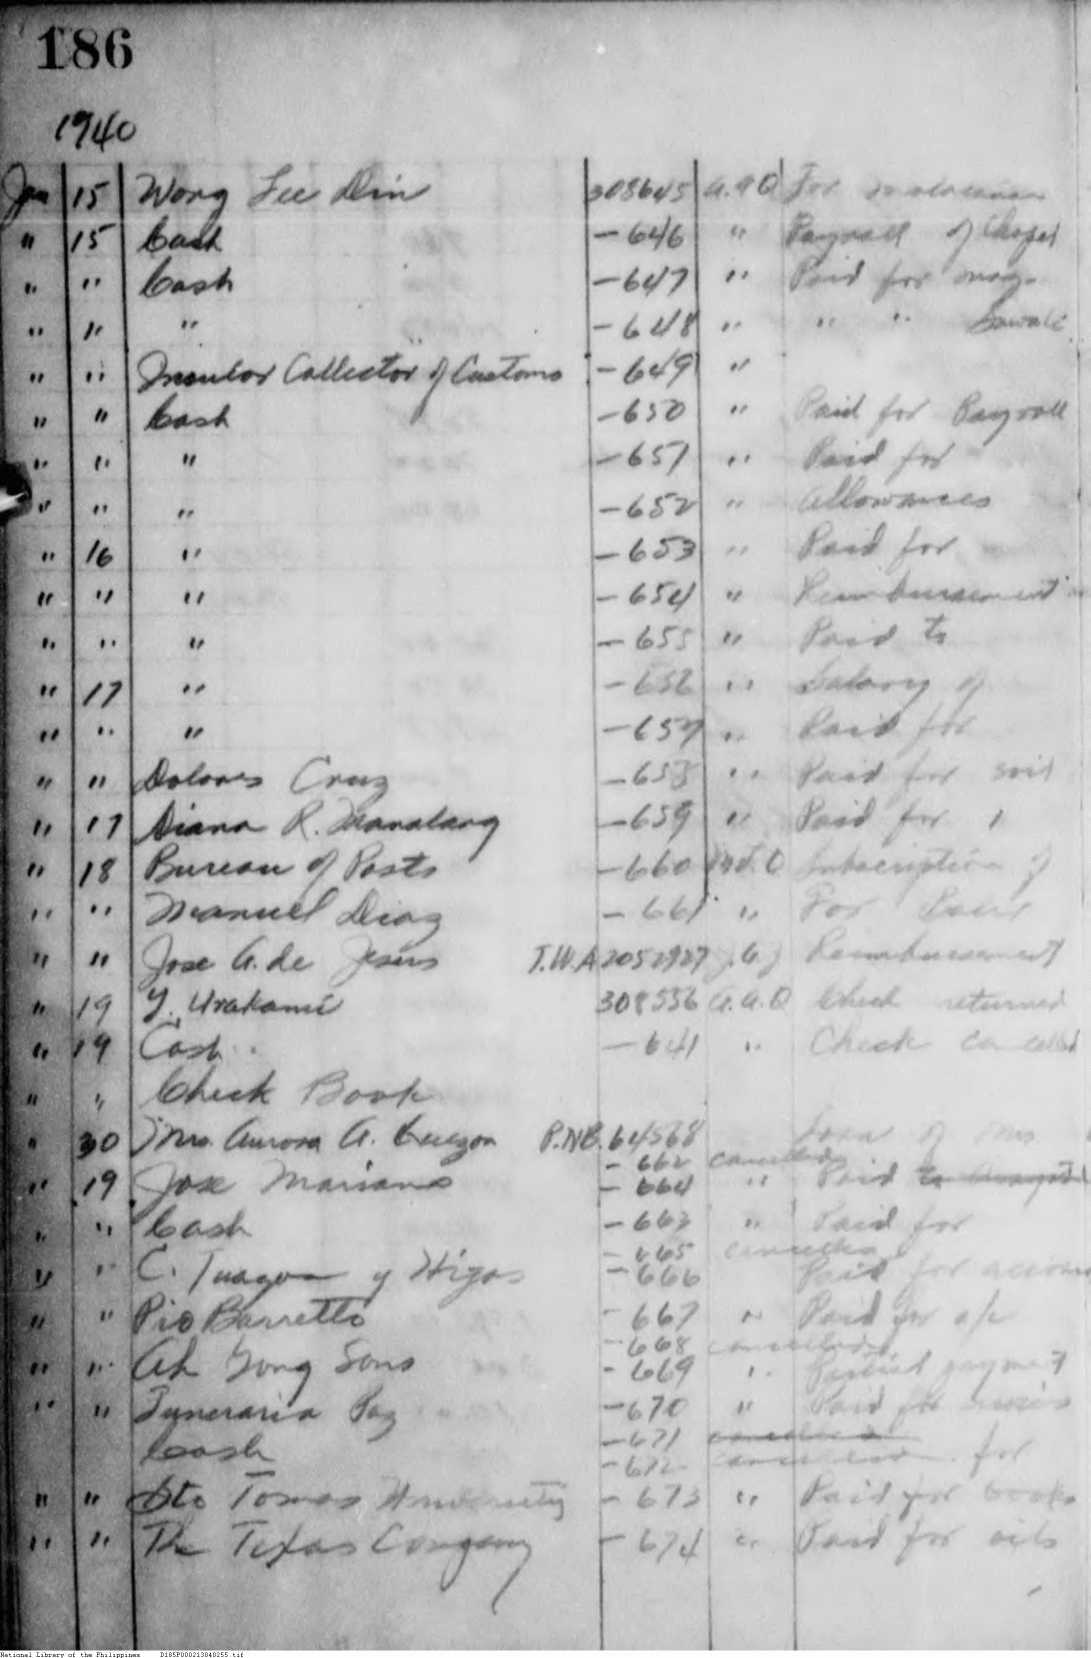 186
1940
Jan 15 Wong Lee Din 308645 A.A.Q For
" 15 Cash - 646 " Payroll of Chapel
" " Cash - 647 " Paid for
" " " - 648 " " " Sawali
" " Insular Collector of Customs - 649 "
" " Cash - 650 " Paid for Payroll
" " " - 651 " Paid for
" " " - 652 " Allowances
" 16 " - 653 " Paid for
" " " - 654 " Reimbursement
" " " - 655 " Paid to
" 17 " - 656 " Salary of
" " " - 657 " Paid for
" " Dolores Cruz - 658 " Paid for soil
" 17 Diana R. Manalang - 659 " Paid for
" 18 Bureau of Posts - 660 Subscription of
" " Manuel Diaz - 661 " For
" " Jose A. de Jesus T.W.A 2052927 Reimbursement
" 19 Y. Urakami 308556 A.A.Q Check returned
" 19 Cash - 641 " Check cancelled
" " Check Book
" 30 Mrs. Aurora A. Quezon P.NB. 64568 of Mrs
- 662 cancelled
" 19 Jose Mariano - 664 " Paid to
" " Cash - 663 " Paid for
- 665 cancelled
" " C. Tuason y Hijos - 666 Paid for
" " Pio Barretto - 667 " Paid for a/c
- 668 cancelled
" " Ah Gong Sons - 669 " Partial payment
" " Funeraria Paz - 670 " Paid for
- 671 cancelled
Cash - 672 cancelled for
" " Sto Tomas University - 673 " Paid for books
" " The Texas Company - 674 " Paid for oils
National Library of the Philippines D185P000213840255.tif